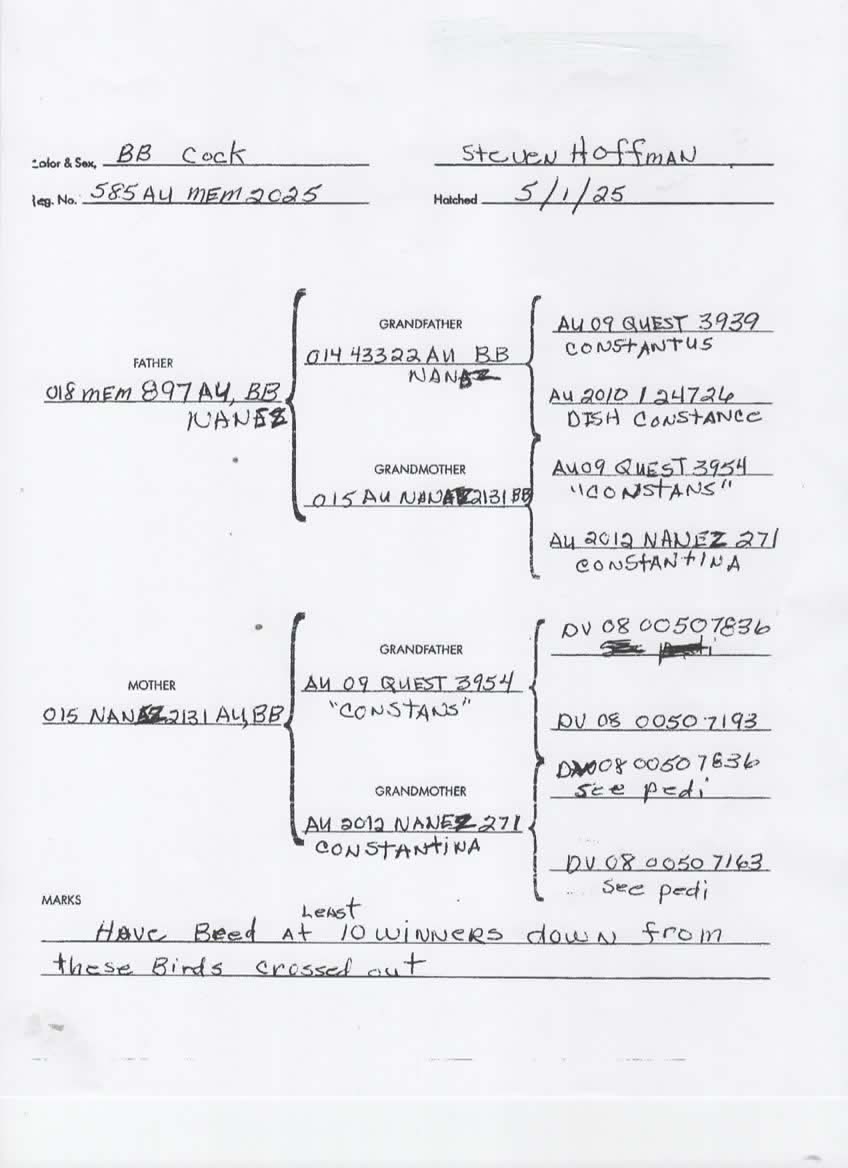 Color & Sex, BB Cock
Steven Hoffman
Reg. No. 585 AU MEM 2025
Hatched 5/1/25
FATHER
018 MEM 897 AU, BB
NANEZ
GRANDFATHER
014 43322 AU BB
NANEZ
GRANDMOTHER
015 AU NANEZ 2131 BB
AU 09 QUEST 3939
CONSTANTUS
AU 2010 124726
DISH CONSTANCE
AU 09 QUEST 3954
"CONSTANS"
AU 2012 NANEZ 271
CONSTANTINA
MOTHER
015 NANEZ 2131 AU, BB
GRANDFATHER
AU 09 QUEST 3954
"CONSTANS"
GRANDMOTHER
AU 2012 NANEZ 271
CONSTANTINA
DV 08 00507836
DV 08 0050 7193
DV 08 0050 7836
See pedi
DV 08 0050 7163
See pedi
MARKS
Have Beed At Least 10 winners down from
these Birds crossed out